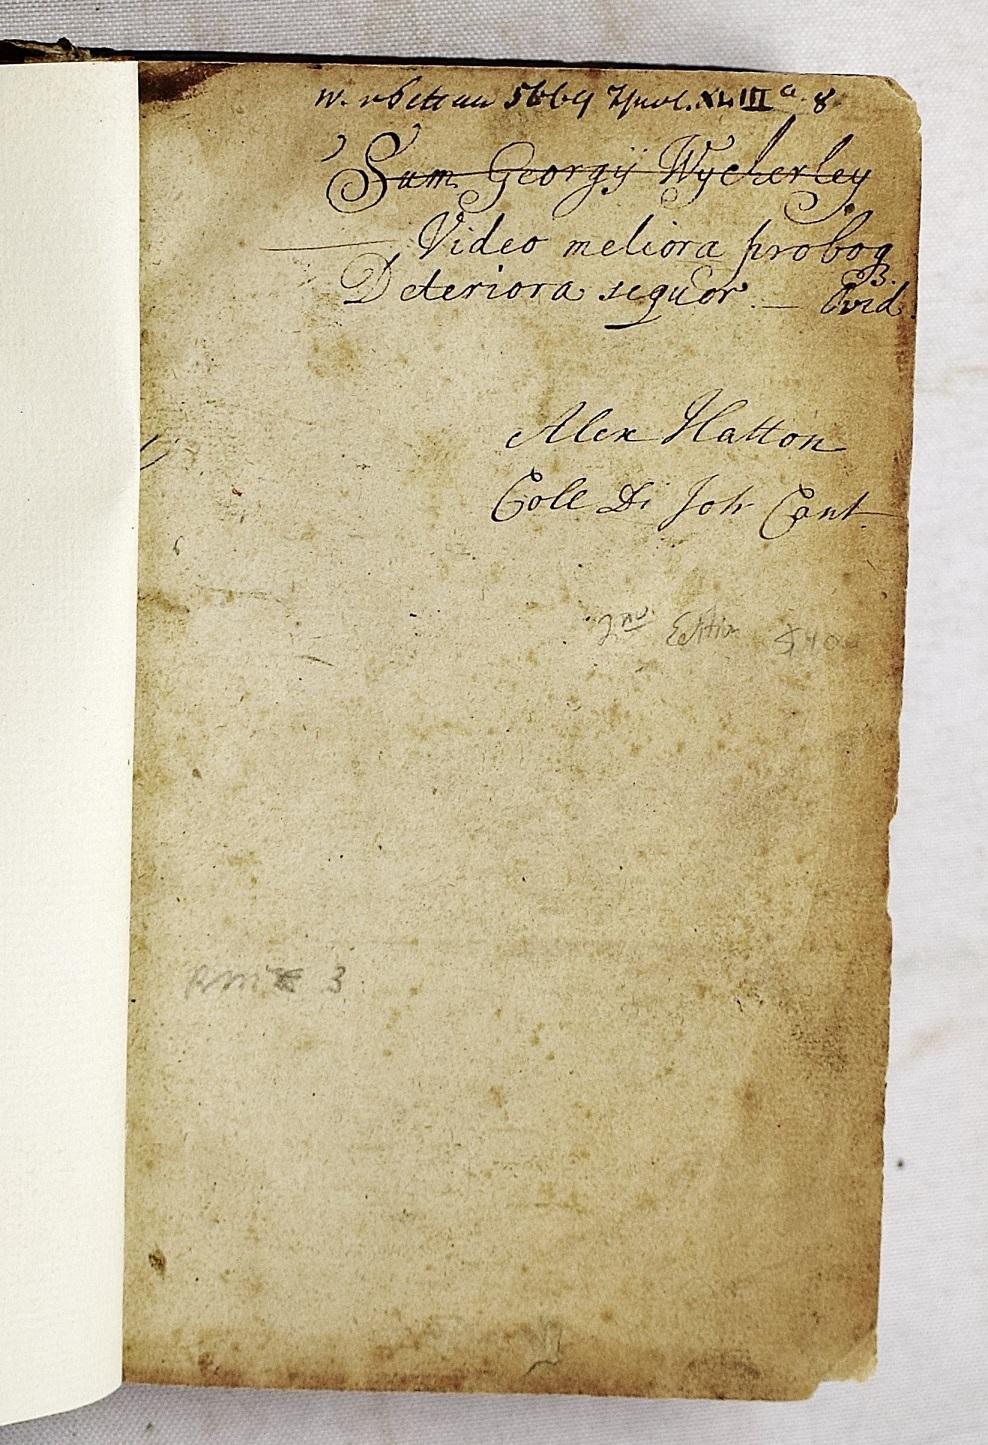 XLIII a. 8
Sum Georgij Wycherley
Video meliora proboq
Deteriora sequor — Ovid.
Alex Hatton
Coll Di Joh Cant.
2nd Edition $400
3